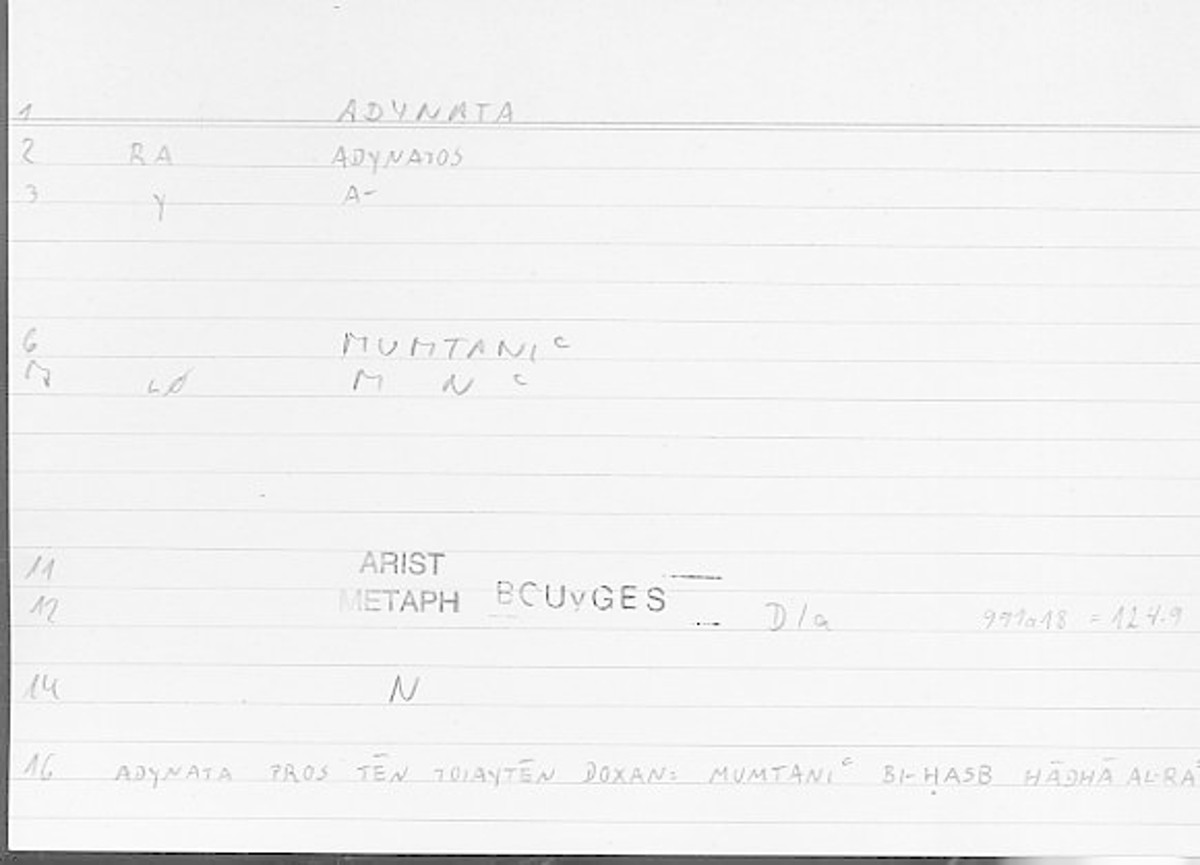 1 ADYNATA
2 RA ADYNATOS
3 Y A-
6 MUMTANIᶜ
LØ M N ᶜ
11 ARIST
12 METAPH BOUyGES D/a = 124.9
14 N
16 ADYNATA PROS TĒN TOIAYTĒN DOXAN: MUMTANIᶜ BI-ḤASB HĀDHĀ AL-RA